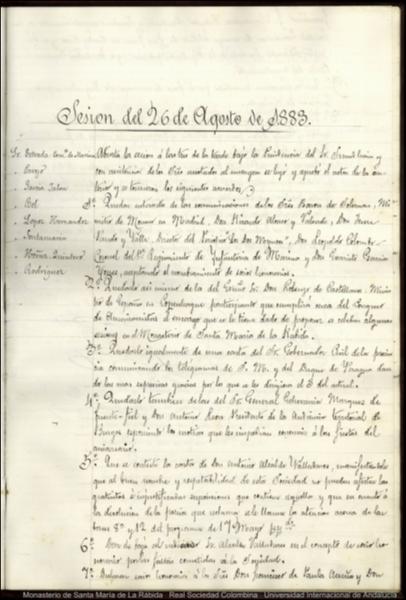 Sesion del 26 de Agosto de 1883.
Sr. Estrada Com.te de Marina
Garcia
Bel
Lopez Hernandez
Santamaria
Rodriguez
Abierta la sesion á las de la tarde bajo la Presidencia del Sr. y
con asistencia de los Sres anotados al margen se leyó y aprobó el acta de la an-
terior y se tomaron los siguientes acuerdos.
1º Quedar enterado de las comunicaciones de los Sres Baron de Mi-
nistro de en Madrid, Don Ricardo Alonso y Don Fer-
nando y Valle, Director del Don Leopoldo Colombo
Coronel del 1er Regimiento de Infanteria de Marina y Don Garcia
aceptando el nombramiento de socios honorarios.
2º Quedarlo asi mismo de la del Excmo Sr. Don de Castellanos, Minis-
tro de España en Copenhague participando que cumplirá cerca del Congreso
de Americanistas el encargo que se le tiene dado de proponer se celebren algunas
sesiones en el Monasterio de Santa Maria de la Rabida.
3º Quedarlo igualmente de una carta del Sr. Gobernador Civil de la provin-
cia comunicando los telegramas de S. M. y del Duque de Veragua dan-
do las mas expresivas gracias por los que se les dirigieron el 3 del actual.
4º Quedarlo tambien de las del Sr. General Gobernador Marques de
Fuente-fiel y Don Antonio Presidente de la Audiencia territorial de
Burgos exponiendo los motivos que les impidieron concurrir á las fiestas del
aniversario.
5º Que se conteste la carta de Don Antonio Alcalde Valladares, manifestandole
que al buen nombre y respetabilidad de esta Sociedad no pueden afectar las
gratuitas é injustificadas suposiciones que contiene aquella y que en cuanto á
la devolucion de la poesia que reclama se le llama la atencion acerca de las
bases 8ª y 12 del programa de 17 Mayo
6º Dar de baja al Sr. Alcalde Valladares en el concepto de socio ho-
norario por las faltas cometidas á la Sociedad.
7º socios honorarios á los Sres Don Francisco de Paula y Don
Monasterio de Santa María de La Rábida . Real Sociedad Colombina . Universidad Internacional de Andalucía